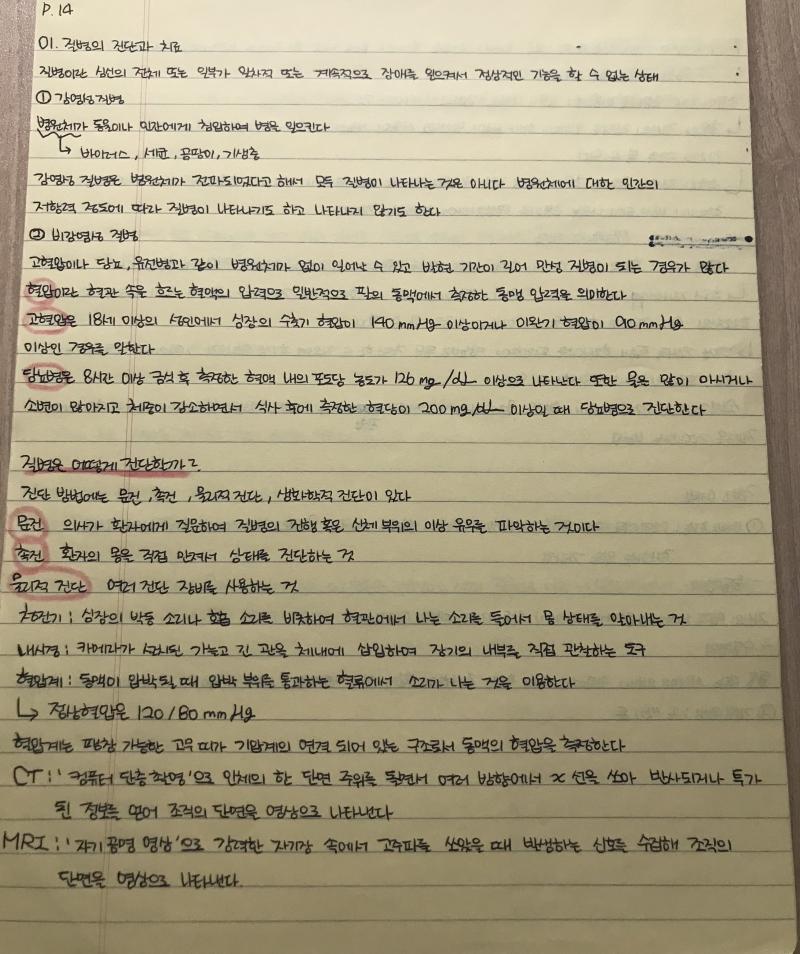 P. 14
01. 질병의 진단과 치료
질병이란 심신의 전체 또는 일부가 일차적 또는 계속적으로 장애를 일으켜서 정상적인 기능을 할 수 없는 상태
① 감염성 질병
병원체가 동물이나 인간에게 침입하여 병을 일으킨다
↳ 바이러스, 세균, 곰팡이, 기생충
감염성 질병은 병원체가 전파되었다고 해서 모두 질병이 나타나는 것은 아니다 병원체에 대한 인간의
저항력 정도에 따라 질병이 나타나기도 하고 나타나지 않기도 한다
② 비감염성 질병
고혈압이나 당뇨, 유전병과 같이 병원체가 없이 일어날 수 있고 발현 기간이 길어 만성 질병이 되는 경우가 많다
혈압이란 혈관 속을 흐르는 혈액의 압력으로 일반적으로 팔의 동맥에서 측정한 동맥 압력을 의미한다
고혈압은 18세 이상의 성인에서 심장의 수축기 혈압이 140 mmHg 이상이거나 이완기 혈압이 90 mmHg
이상인 경우를 말한다
당뇨병은 8시간 이상 금식 후 측정한 혈액 내의 포도당 농도가 126 mg/dL 이상으로 나타난다 또한 물을 많이 마시거나
소변이 많아지고 체중이 감소하면서 식사 후에 측정한 혈당이 200 mg/dL 이상일 때 당뇨병으로 진단한다
질병은 어떻게 진단할까?
진단 방법에는 문진, 촉진, 물리적 진단, 생화학적 진단이 있다
문진 의사가 환자에게 질문하여 질병의 진행 혹은 신체 부위의 이상 유무를 파악하는 것이다
촉진 환자의 몸을 직접 만져서 상태를 진단하는 것
물리적 진단 여러 진단 장비를 사용하는 것
청진기 : 심장의 박동 소리나 호흡 소리를 비롯하여 혈관에서 나는 소리를 들어서 몸 상태를 알아내는 것
내시경 : 카메라가 설치된 가늘고 긴 관을 체내에 삽입하여 장기의 내부를 직접 관찰하는 도구
혈압계 : 동맥이 압박 될 때 압박 부위를 통과하는 혈류에서 소리가 나는 것을 이용한다
↳ 정상혈압은 120/80 mmHg
혈압계는 팽창 가능한 고무 띠가 기압계의 연결 되어 있는 구조로서 동맥의 혈압을 측정한다
CT : '컴퓨터 단층 촬영'으로 인체의 한 단면 주위를 돌면서 여러 방향에서 x 선을 쏘아 반사되거나 투과
된 정보를 얻어 조직의 단면을 영상으로 나타낸다
MRI : '자기 공명 영상'으로 강력한 자기장 속에서 고주파를 쏘았을 때 발생하는 신호를 수집해 조직의
단면을 영상으로 나타낸다.